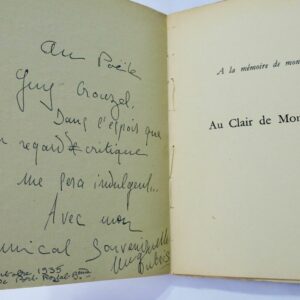 Au Poète
Guy Crouzel.
Dans l'espoir que
regard critique
me sera indulgent...
Avec mon
amical souvenir
Dubois
1935
Port-Royal
A la mémoire de mon
Au Clair de Mon